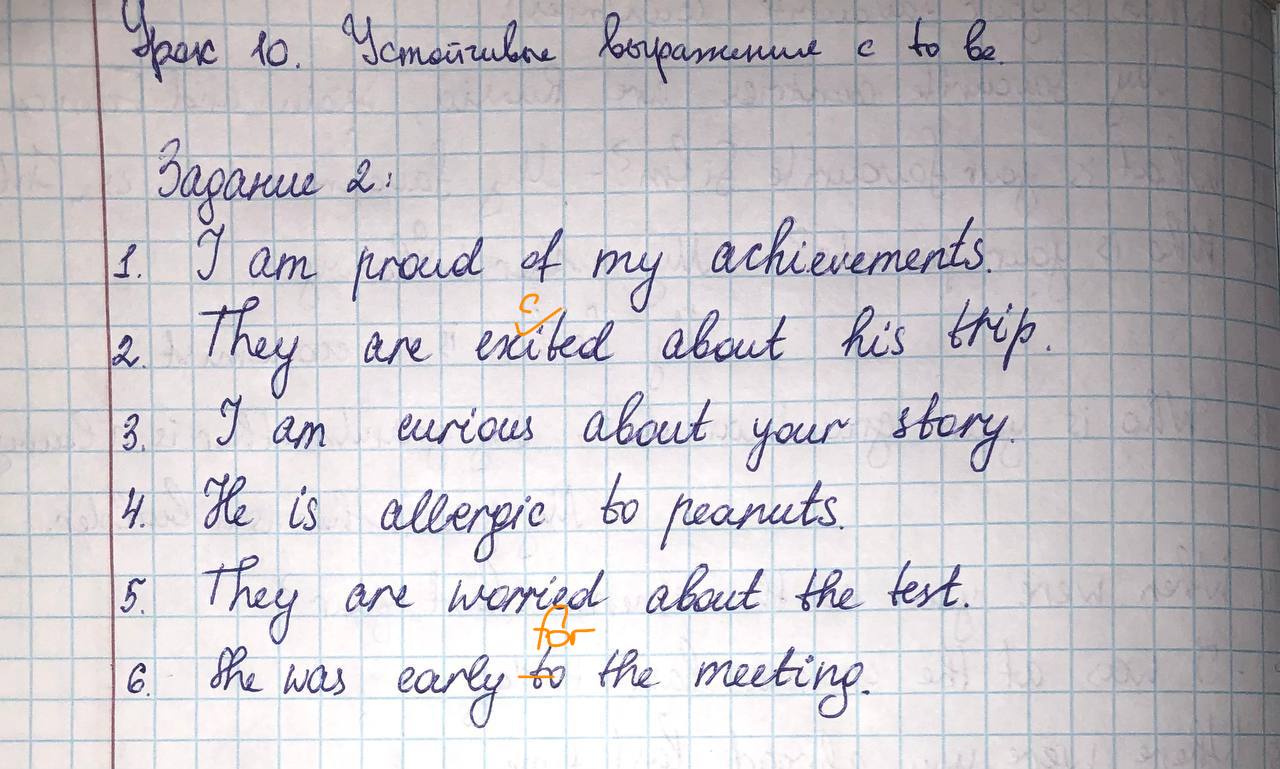 Урок 10. Устойчивые выражения с to be.
Задание 2:
1. I am proud of my achievements.
c
2. They are exited about his trip.
3. I am curious about your story.
4. He is allergic to peanuts.
5. They are worried about the test.
for
6. She was early to the meeting.